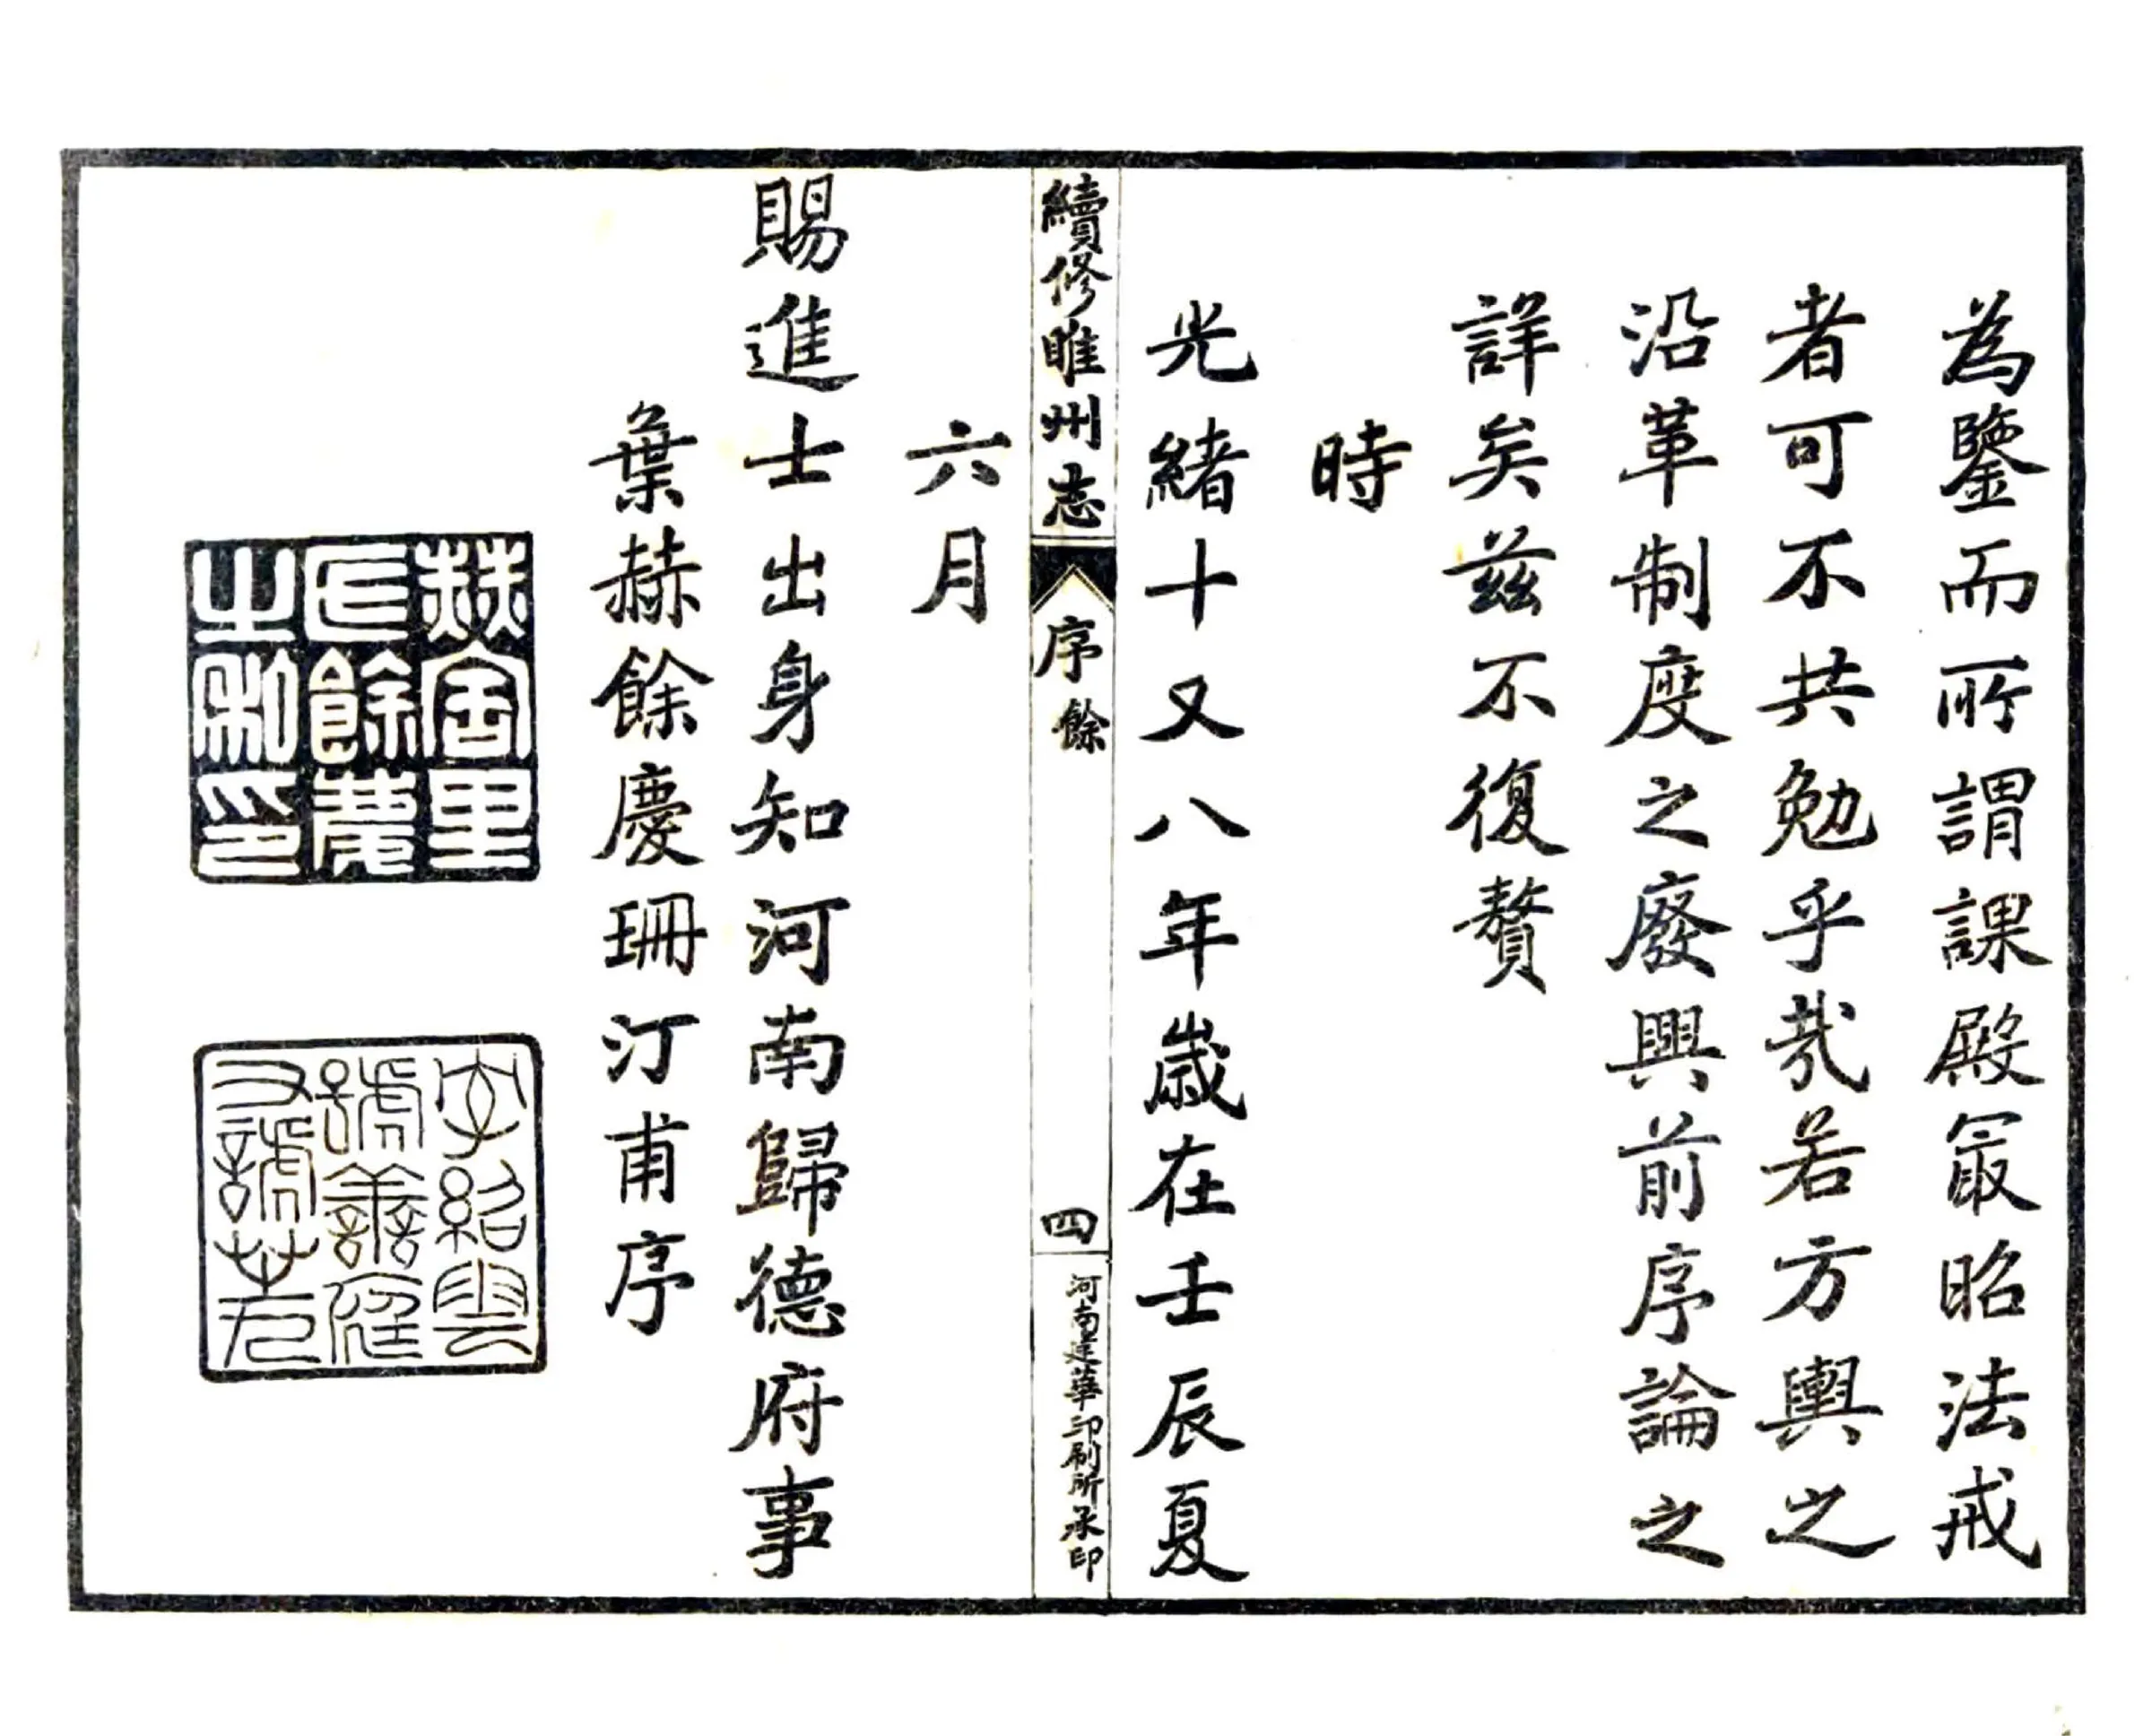 為鑒而所謂課殿冣昭法戒
者可不共勉乎哉若方輿之
沿革制度之廢興前序論之
詳矣兹不復贅
時
光緒十又八年歲在壬辰夏
續修睢州志
序
餘
四
河南建華印刷所承印
六月
賜進士出身知河南歸德府事
葉赫餘慶珊汀甫序
赫舍里
氏餘慶
之私印
字紹雲
號善庭
又號